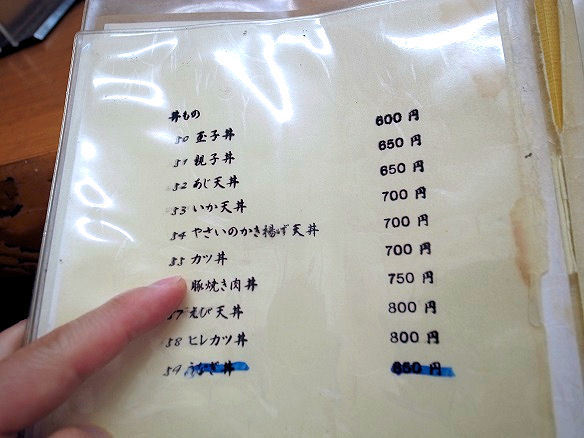 丼もの
50 玉子丼 600 円
51 親子丼 650 円
52 あじ天丼 650 円
53 いか天丼 700 円
54 やさいのかき揚げ天丼 700 円
55 カツ丼 700 円
豚焼き肉丼 750 円
57 えび天丼 800 円
58 ヒレカツ丼 800 円
59 うなぎ丼 850 円